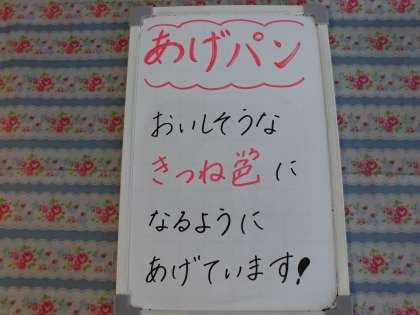 あげパン
おいしそうな
きつね色に
なるように
あげています!